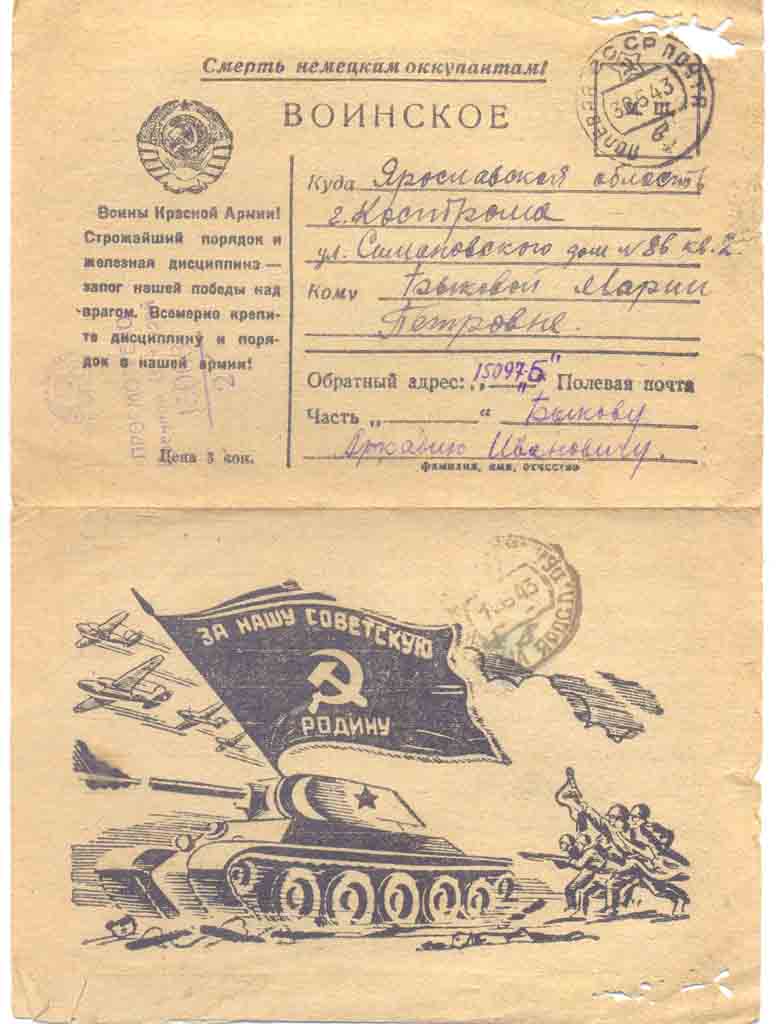 Смерть немецким оккупантам!
СССР ПОЧТА
ПОЛЕВАЯ
30 6 43
ВОИНСКОЕ
Воины Красной Армии!
Строжайший порядок и
железная дисциплина —
залог нашей победы над
врагом. Всемерно крепи-
те дисциплину и поря-
док в нашей армии!
Цена 5 коп.
Куда Ярославская область
г. Кострома
ул. Симановского дом № 86 кв. 2
Кому Быковой Марии
Петровне.
Обратный адрес: „15097-Б“ Полевая почта
Часть „ “ Быкову
Аркадию Ивановичу.
фамилия, имя, отчество
ПРОСМОТРЕНО
ЗА НАШУ СОВЕТСКУЮ
РОДИНУ